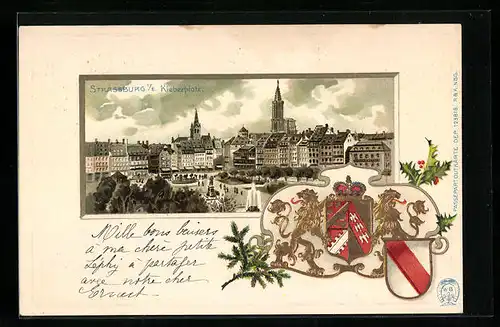 STRASSBURG i/E. Kleberplatz.
Mille bons baisers
à ma chère petite
à partager
avec notre cher
Ernest.
PASSEPARTOUTKARTE DEP.